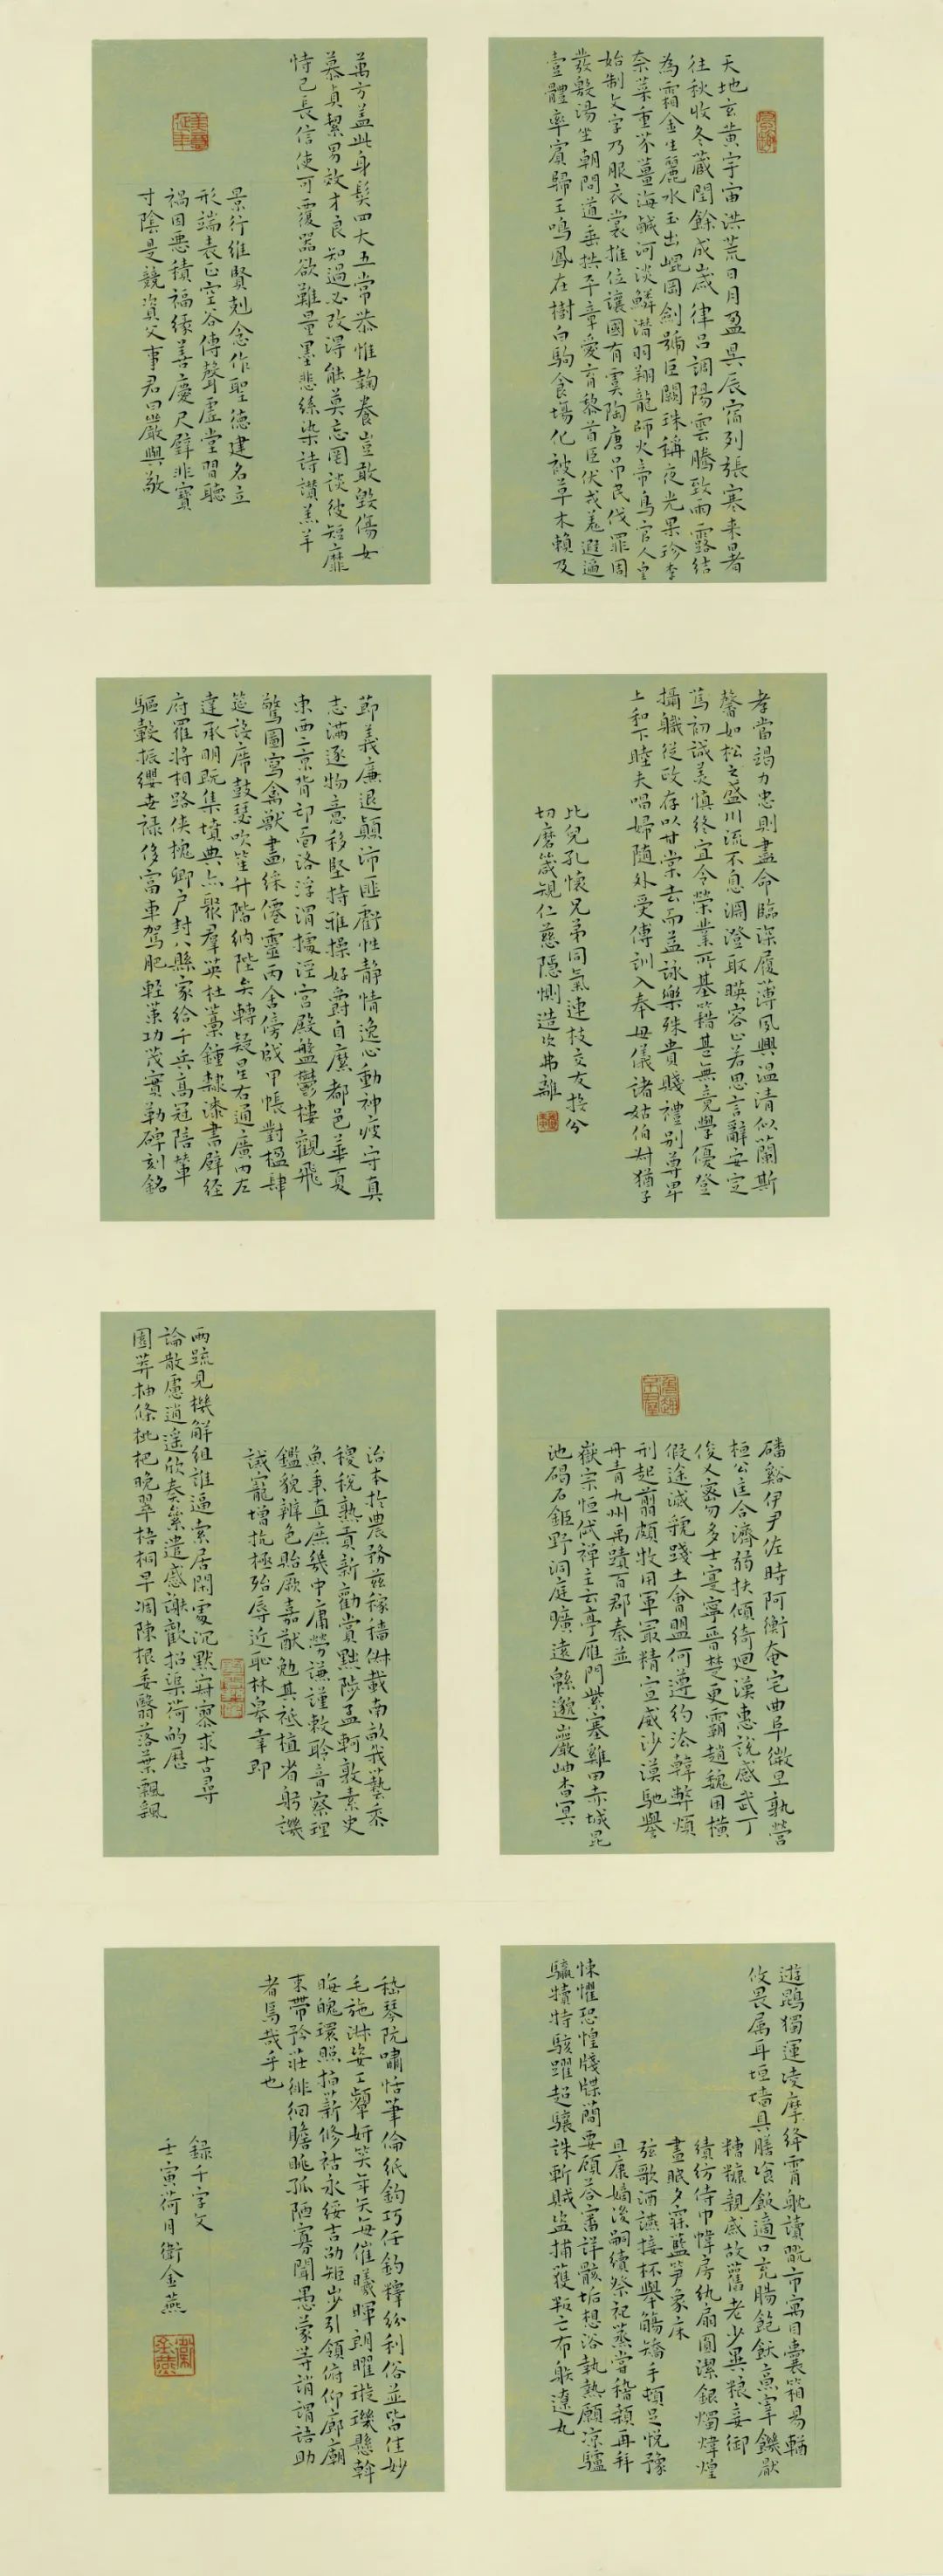 天地玄黄宇宙洪荒日月盈昃辰宿列張寒来暑
往秋收冬藏閏餘成歲律吕調陽雲騰致雨露結
為霜金生麗水玉出崐岡劍號巨闕珠稱夜光果珍李
柰菜重芥薑海鹹河淡鱗潛羽翔龍師火帝鳥官人皇
始制文字乃服衣裳推位讓國有虞陶唐吊民伐罪周
發殷湯坐朝問道垂拱平章愛育黎首臣伏戎羌遐邇
壹體率賓歸王鳴鳳在樹白駒食場化被草木賴及
萬方盖此身髮四大五常恭惟鞠養豈敢毀傷女
慕貞絜男效才良知過必改得能莫忘罔談彼短靡
恃己長信使可覆器欲難量墨悲絲染詩讃羔羊
景行維賢剋念作聖德建名立
形端表正空谷傳聲虛堂習聽
禍因惡積福緣善慶尺璧非寶
寸陰是競資父事君曰嚴與敬
孝當竭力忠則盡命臨深履薄夙興温清似蘭斯
馨如松之盛川流不息淵澄取暎容止若思言辭安定
篤初誠美慎終宜令榮業所基籍甚無竟學優登
攝職從政存以甘棠去而益詠樂殊貴賤禮别尊卑
上和下睦夫唱婦隨外受傅訓入奉母儀諸姑伯叔猶子
比兒孔懷兄弟同氣連枝交友投分
切磨箴規仁慈隱惻造次弗離
節義廉退顛沛匪虧性静情逸心動神疲守真
志滿逐物意移堅持雅操好爵自縻都邑華夏
東西二京背邙面洛浮渭據涇宫殿盤鬱樓觀飛
驚圖寫禽獸畫綵僊靈丙舍傍啟甲帳對楹肆
筵設席鼓瑟吹笙升階納陛弁轉疑星右通廣内左
達承明既集墳典亦聚羣英杜藁鍾隸漆書壁經
府羅將相路俠槐卿户封八縣家給千兵高冠陪輦
驅轂振纓世禄侈富車駕肥輕策功茂實勒碑刻銘
磻谿伊尹佐時阿衡奄宅曲阜微旦孰營
桓公匡合濟弱扶傾綺迴漢惠説感武丁
俊乂密勿多士寔寧晉楚更霸趙魏困橫
假途滅虢踐土會盟何遵約法韓弊煩
刑起翦頗牧用軍最精宣威沙漠馳譽
丹青九州禹蹟百郡秦并
嶽宗恒岱禪主云亭雁門紫塞雞田赤城昆
池碣石鉅野洞庭曠遠緜邈巖岫杳冥
治本於農務兹稼穡俶載南畝我藝黍
稷税熟貢新勸賞黜陟孟軻敦素史
魚秉直庶幾中庸勞謙謹敕聆音察理
鑑貌辨色貽厥嘉猷勉其祗植省躬譏
誡寵增抗極殆辱近恥林皋幸即
兩疏見機解組誰逼索居閑處沉默寂寥求古尋
論散慮逍遥欣奏累遣慼謝歡招渠荷的歷
園莽抽條枇杷晚翠梧桐早凋陳根委翳落葉飄飖
遊鵾獨運凌摩絳霄耽讀翫市寓目囊箱易輶
攸畏属耳垣墙具膳飡飯適口充腸飽飫烹宰飢厭
糟糠親戚故舊老少異粮妾御
績紡侍巾帷房紈扇圓潔銀燭煒煌
晝眠夕寐藍笋象床
弦歌酒讌接杯舉觴矯手頓足悦豫
且康嫡後嗣續祭祀蒸嘗稽顙再拜
悚懼恐惶牋牒簡要顧答審詳骸垢想浴執熱願凉驢
騾犢特駭躍超驤誅斬賊盗捕獲叛亡布射遼丸
嵇琴阮嘯恬筆倫紙鈞巧任釣釋紛利俗並皆佳妙
毛施淑姿工顰妍笑年矢每催曦暉朗曜璇璣懸斡
晦魄環照指薪修祜永綏吉劭矩步引領俯仰廊廟
束帶矜莊徘徊瞻眺孤陋寡聞愚蒙等誚謂語助
者焉哉乎也
録千字文
壬寅荷月衛金燕